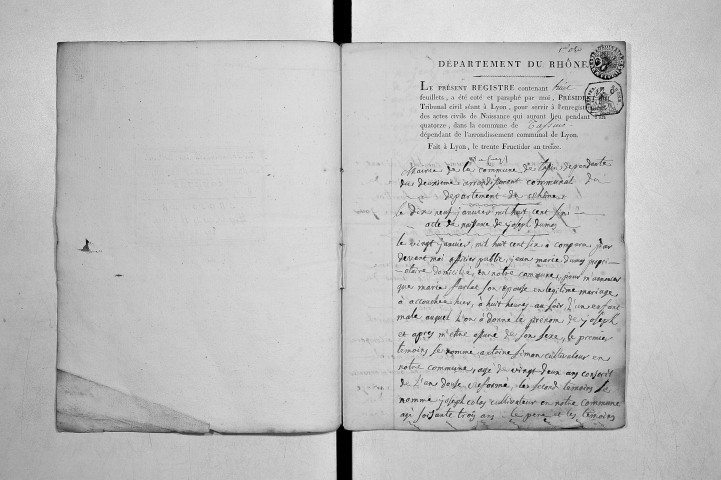 DÉPARTEMENT DU RHÔNE
LE PRÉSENT REGISTRE contenant huit
feuillets, a été coté et paraphé par moi, PRÉSIDENT
Tribunal civil séant à Lyon, pour servir à l'enregistre
des actes civils de Naissance qui auront lieu pendant l'an
quatorze, dans la commune de Tassin
dépendant de l'arrondissement communal de Lyon.
Fait à Lyon, le trente Fructidor an treize.
Mairie de la commune de tassin, dependante
du deuxieme arrondissement communal du
departement du rhône
le dix neuf janvier mil huit cent six
acte de naissance de joseph dumas
le vingt janvier, mil huit cent six à comparu, par
devant moi officier public, jean marie dumas propri-
-etaire domicilié, en notre commune, pour m'annoncer
que marie farlat son epouse en legitime mariage
à accouchée hier, à huit heures au soir d'un enfant
male auquel l'on à donné le prenom de joseph
et après m'être assuré de son sexe, le premier
temoins se nomme antoine simon cultivateur en
notre commune, age de vingt deux ans conscrit
de l'an douze, reformé, le second temoins se
nomme joseph cultivateur en notre commune
agé soisante trois ans le pere et les temoins